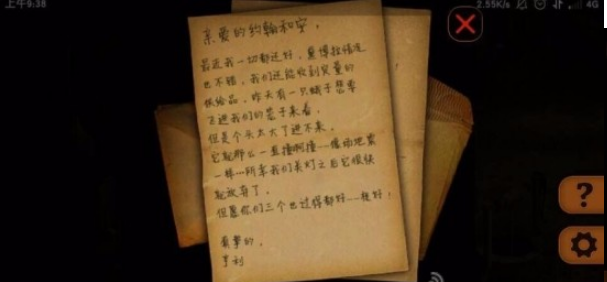 上午9:38
2.55K/s
4G
亲爱的约翰和安，
最近我一切都还好，
也不错，我们还能收到定量的
供给品，昨天有一只蛾子想要
飞进我们的屋子来着，
但是个头太大了进不来，
它就那么一直撞啊撞……像动地震
一样…所幸我们关灯之后它很快
就放弃了。
但愿你们三个也过得都好……挺好！
真挚的，
亨利
?